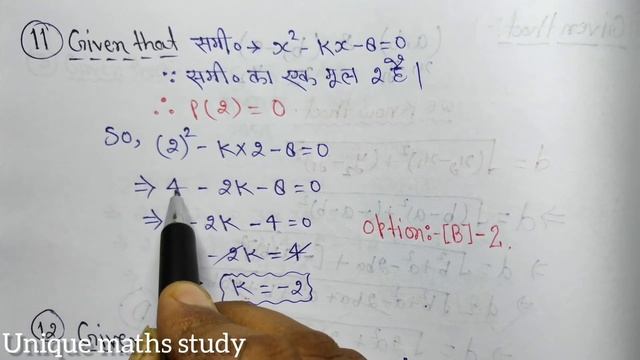 (11) Given that समी० → x² - Kx - 8 = 0
∵ समी० का एक मूल 2 है।
∴ P(2) = 0
So, (2)² - K×2 - 8 = 0
⇒ 4 - 2K - 8 = 0
⇒ - 2K - 4 = 0
- 2K = 4
K = -2
option:-[B]-2.
(12) Give
Unique maths study